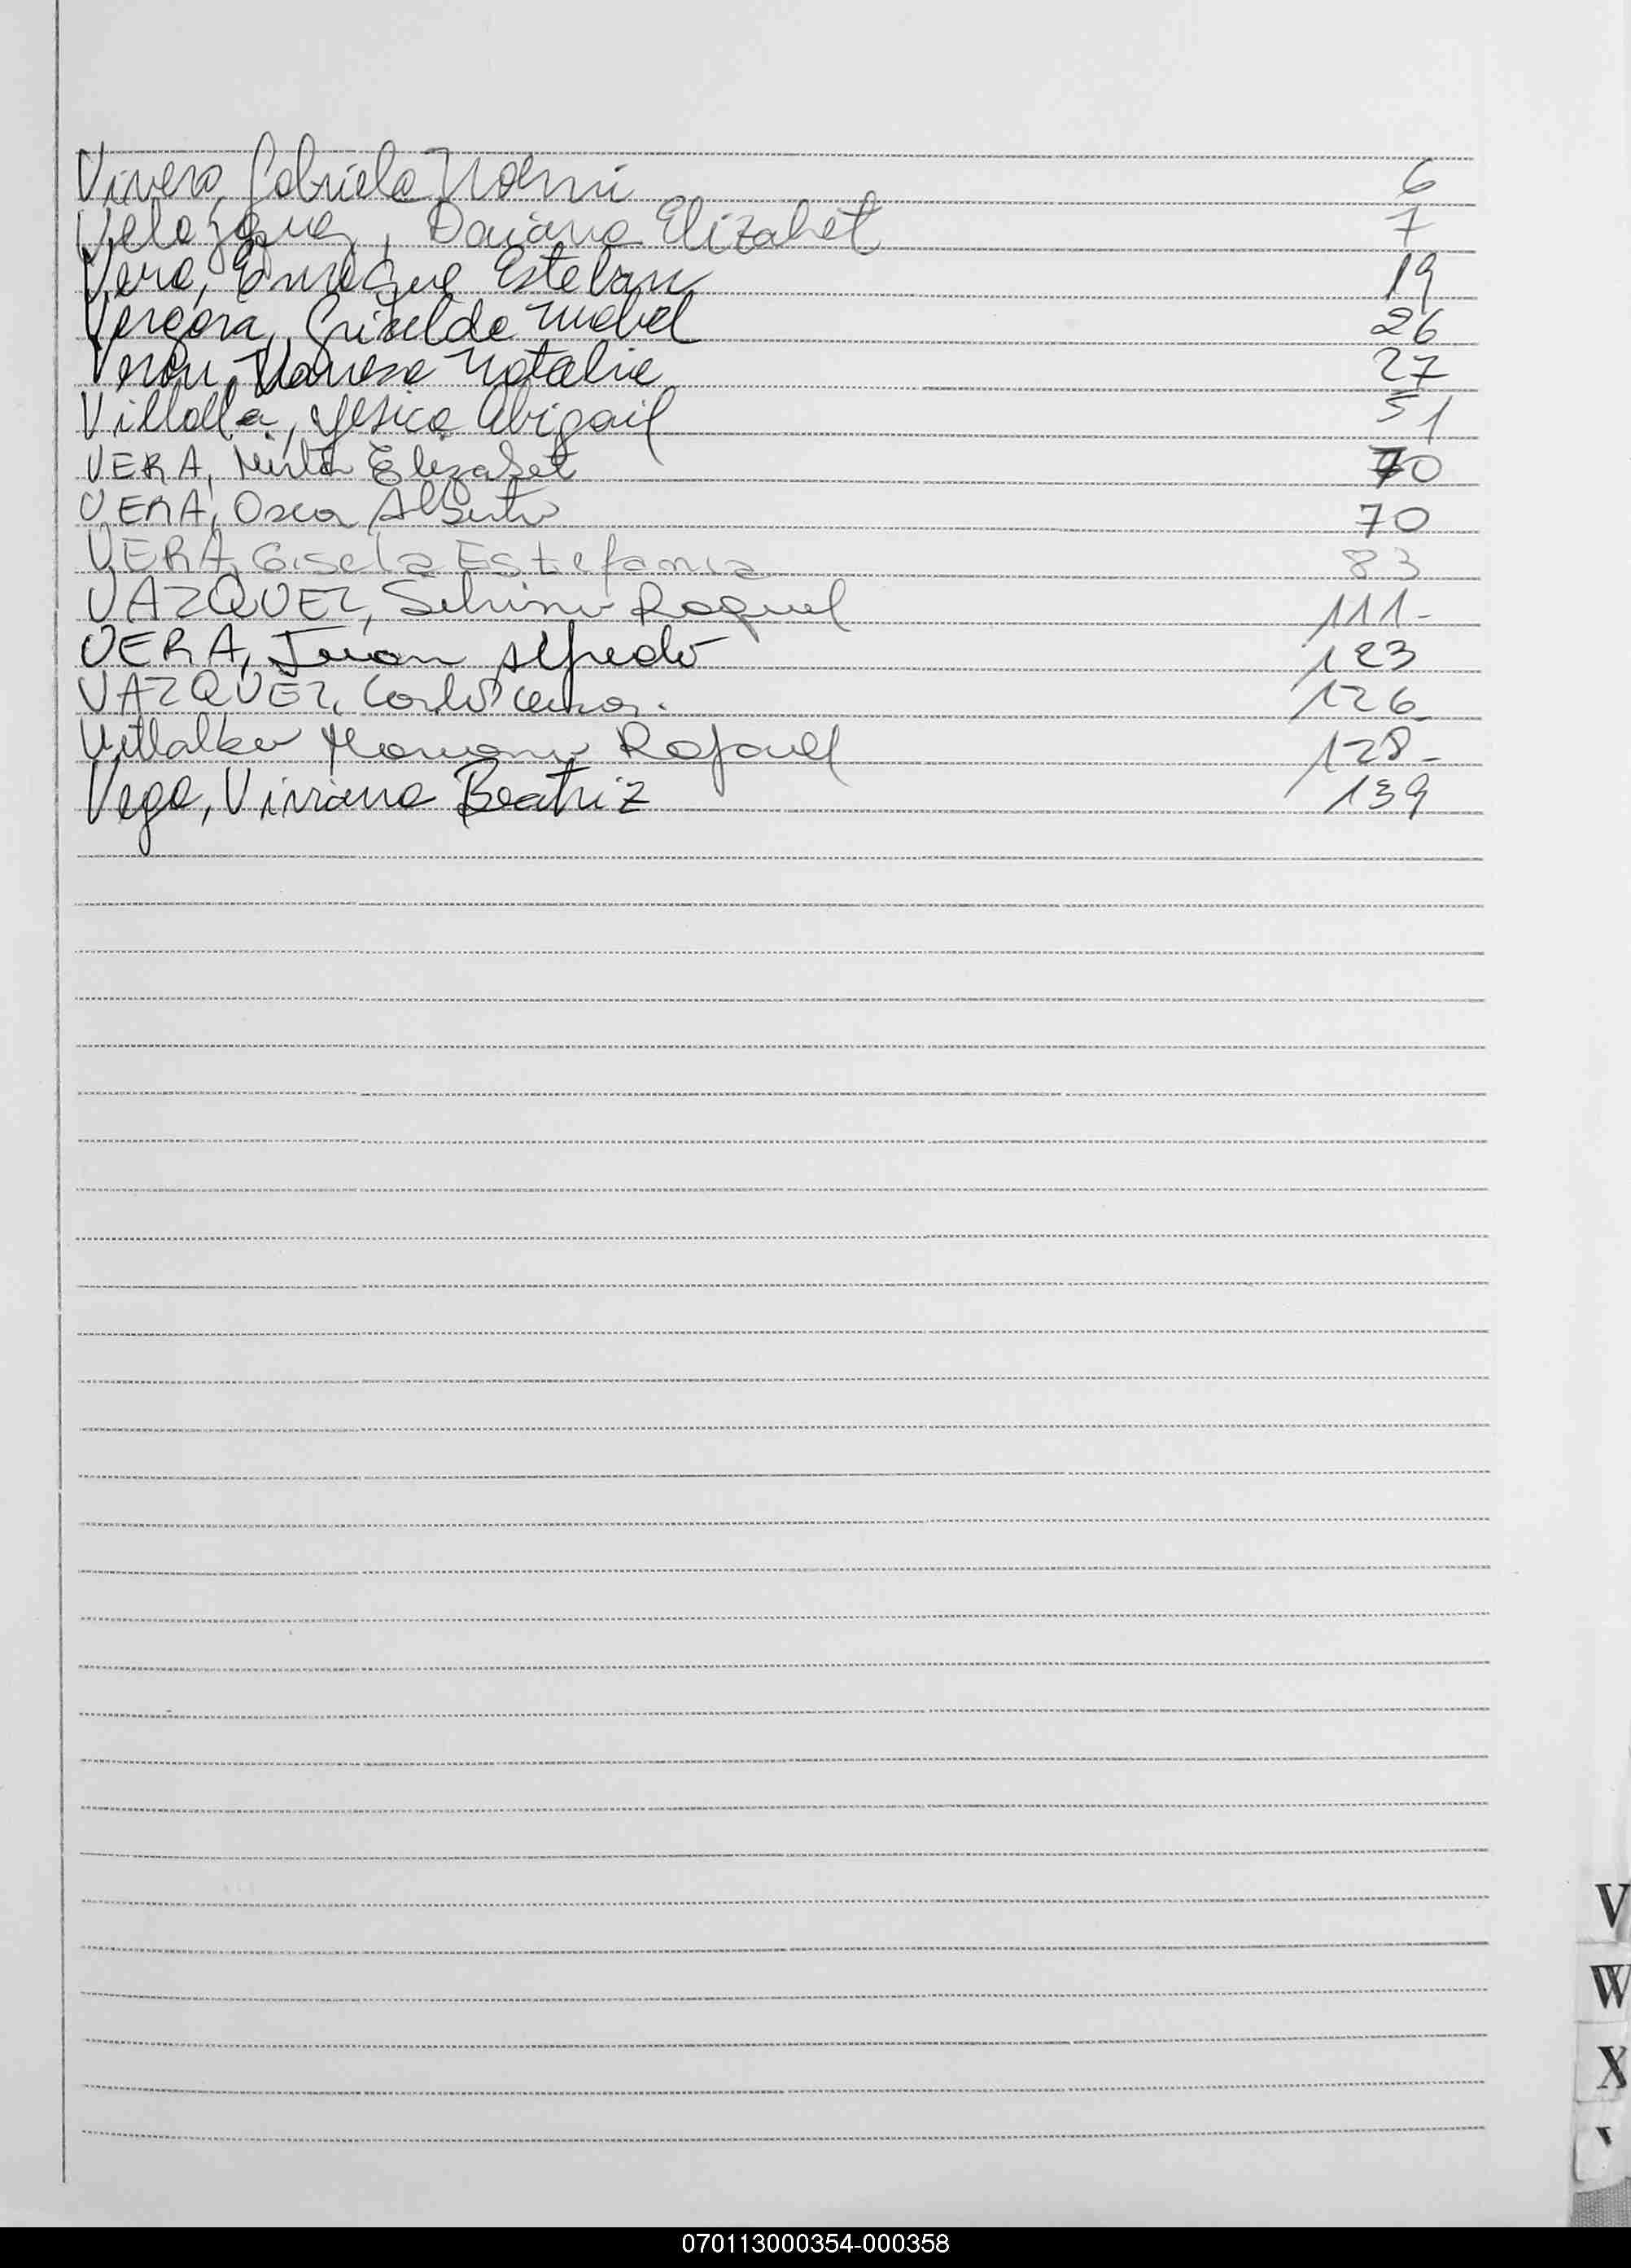 Vivero, Gabriela Noemi 6
Velazquez, Daiana Elizabet 7
Vera, Enrique Esteban 19
Vergara, Griselda Mabel 26
Veron, Vanesa Natalia 27
Villalba, Yesica Abigail 51
VERA, Mirta Elizabet 70
VERA, Oscar Alberto 70
VERA, Gisela Estefania 83
VAZQUEZ, Silvina Raquel 111-
VERA, Juan Alfredo 123
VAZQUEZ, Carlos Cesar. 126
Villalba Mariano Rafael 128-
Vega, Viviana Beatriz 139
V
W
X
070113000354-000358